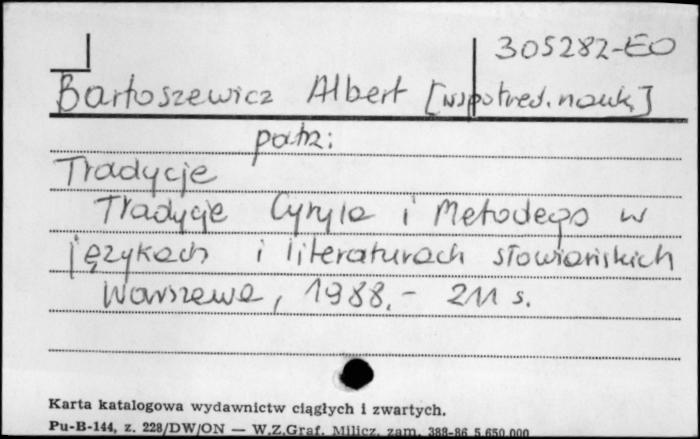 305282-EO
Bartoszewicz Albert [współred. nauk.]
patrz:
Tradycje
Tradycje Cyryla i Metodego w
językach i literaturach słowiańskich
Warszawa, 1988.- 211 s.
Karta katalogowa wydawnictw ciągłych i zwartych.
Pu-B-144, z. 228/DW/ON — W.Z.Graf. Milicz, zam. 388-86 5.650.000